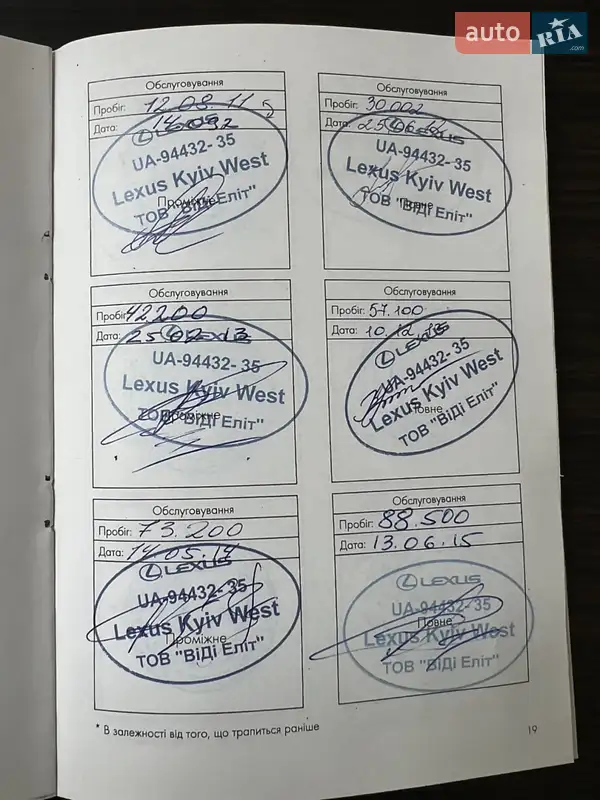 auto RIA .com
Обслуговування
Пробіг: 12.08.11
Дата:
UA-94432-35
Lexus Kyiv West
Проміжне
ТОВ "ВіДі Еліт"
Обслуговування
Пробіг: 30002
Дата: LEXUS
UA-94432-35
Lexus Kyiv West
Повне
ТОВ "ВіДі Еліт"
Обслуговування
Пробіг: 42200
Дата: LEXUS
UA-94432-35
Lexus Kyiv West
Проміжне
ТОВ "ВіДі Еліт"
Обслуговування
Пробіг: 57.100
Дата: 10.12.13
LEXUS
UA-94432-35
Lexus Kyiv West
Повне
ТОВ "ВіДі Еліт"
Обслуговування
Пробіг: 73.200
Дата: 14.05.14
LEXUS
UA-94432-35
Lexus Kyiv West
Проміжне
ТОВ "ВіДі Еліт"
Обслуговування
Пробіг: 88.500
Дата: 13.06.15
LEXUS
UA-94432-35
Повне
Lexus Kyiv West
ТОВ "ВіДі Еліт"
* В залежності від того, що трапиться раніше
19